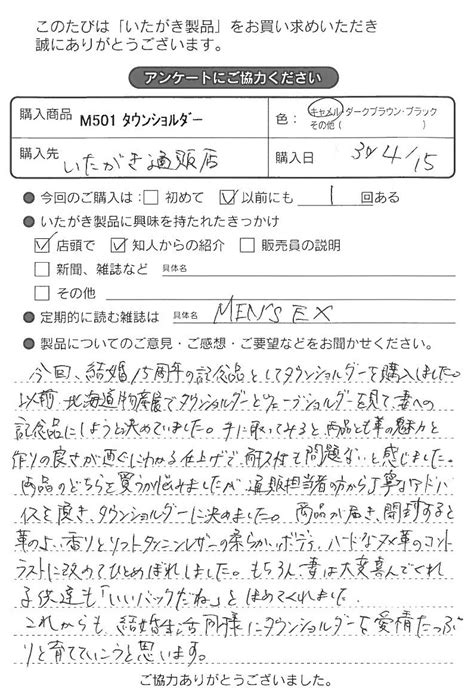 このたびは「いたがき製品」をお買い求めいただき
誠にありがとうございます。
アンケートにご協力ください
購入商品 M501 タウンショルダー
色：キャメル・ダークブラウン・ブラック
その他（ ）
購入先 いたがき通販店
購入日 30/4/15
今回のご購入は：初めて 以前にも 1 回ある
いたがき製品に興味を持たれたきっかけ
店頭で 知人からの紹介 販売員の説明
新聞、雑誌など 具体名
その他
定期的に読む雑誌は 具体名 MEN'S EX
製品についてのご意見・ご感想・ご要望などをお聞かせください。
今回、結婚15周年の記念品としてタウンショルダーを購入しました。
以前 北海道物産展でタウンショルダーとウェーブショルダーを見て妻への
記念品にしようと決めていました。手に取ってみると商品と革の魅力と
作りの良さが直ぐにわかる仕上げで耐久性も問題ないと感じました。
商品のどちらを買うか悩みましたが通販担当者の方から丁寧なアドバ
イスを頂き、タウンショルダーに決めました。商品が届き、開封すると
革のよい香りとソフトタンニンレザーの柔らかいボディ、ハードなヌメ革のコント
ラストに改めてひとめぼれしました。もちろん、妻は大変喜んでくれ
子供達も「いいバックだね」とほめてくれました。
これからも、結婚生活同様にタウンショルダーを愛情たっぷ
りと育てていこうと思います。
ご協力ありがとうございました。